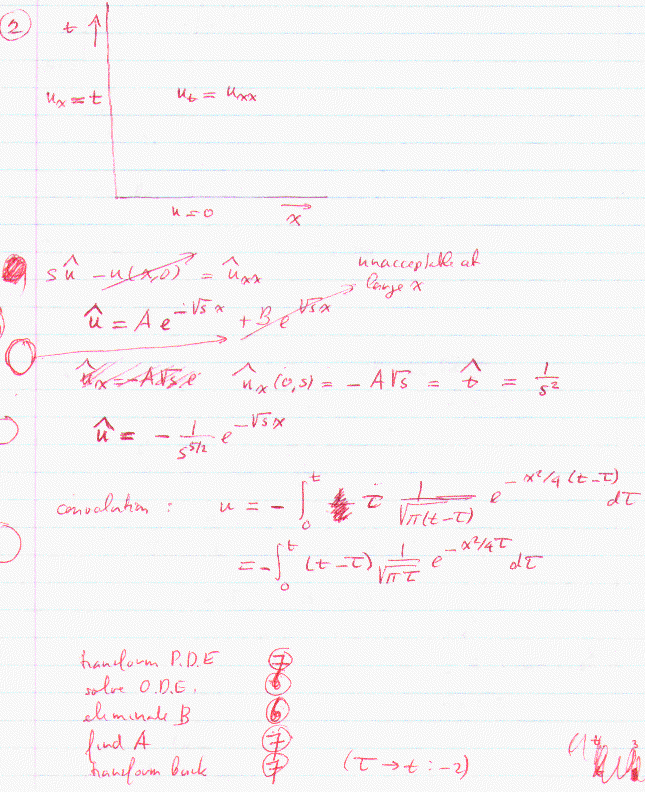 ②
t ↑
u_x = t
u_t = u_xx
u = 0
x →
s û − u(x,0) = û_xx
unacceptable at
large x
û = A e^{−√s x} + B e^{√s x}
û_x = −A√s e
û_x (0,s) = − A √s = t̂ = 1/s²
û = − 1/s^{5/2} e^{−√s x}
convolution : u = − ∫₀ᵗ τ 1/√(π(t−τ)) e^{−x²/4(t−τ)} dτ
= − ∫₀ᵗ (t−τ) 1/√(πτ) e^{−x²/4τ} dτ
transform P.D.E ⑦
solve O.D.E. ⑥
eliminate B ⑥
find A ⑦
transform back ⑦ (τ → t : −2)